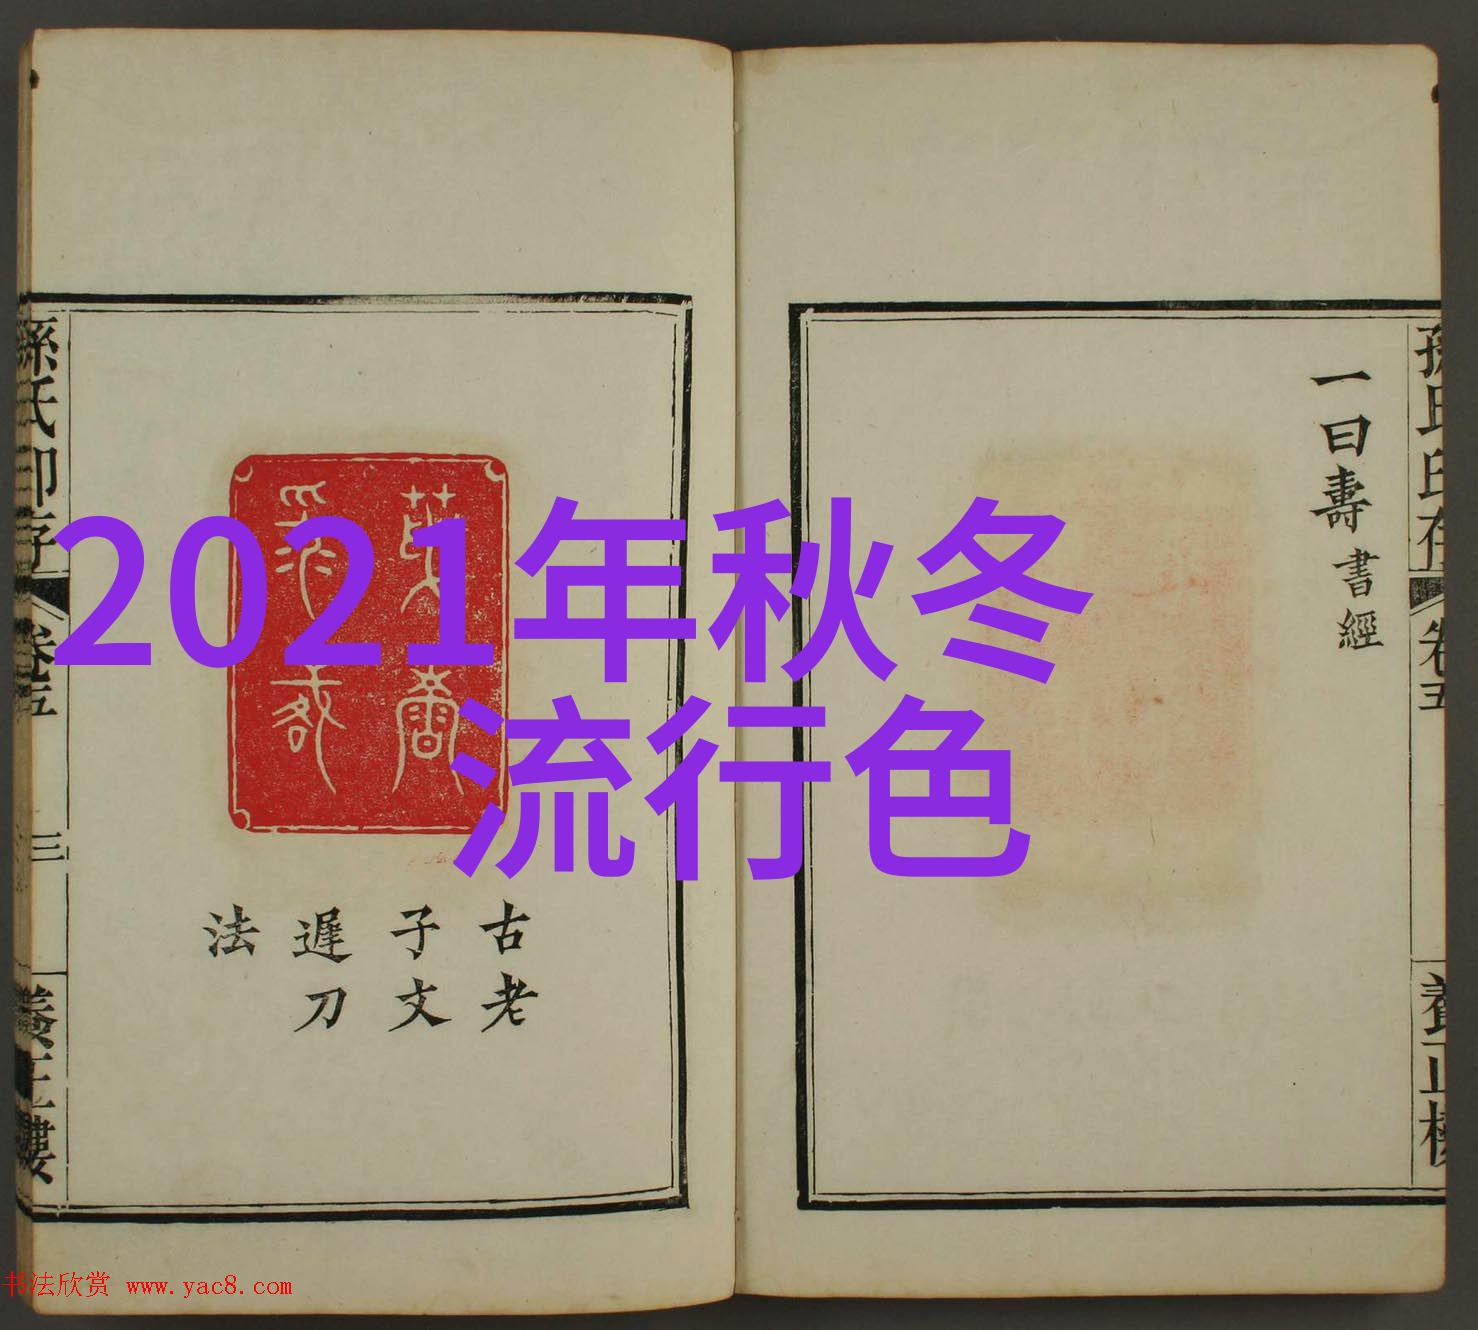 2021年秋冬
流行色
一曰壽書經
孫氏印存
卷五
養正樓
古老
子文
遲刀
法
孫氏印存
卷五
三
養正樓
书法欣赏 www.yac8.com